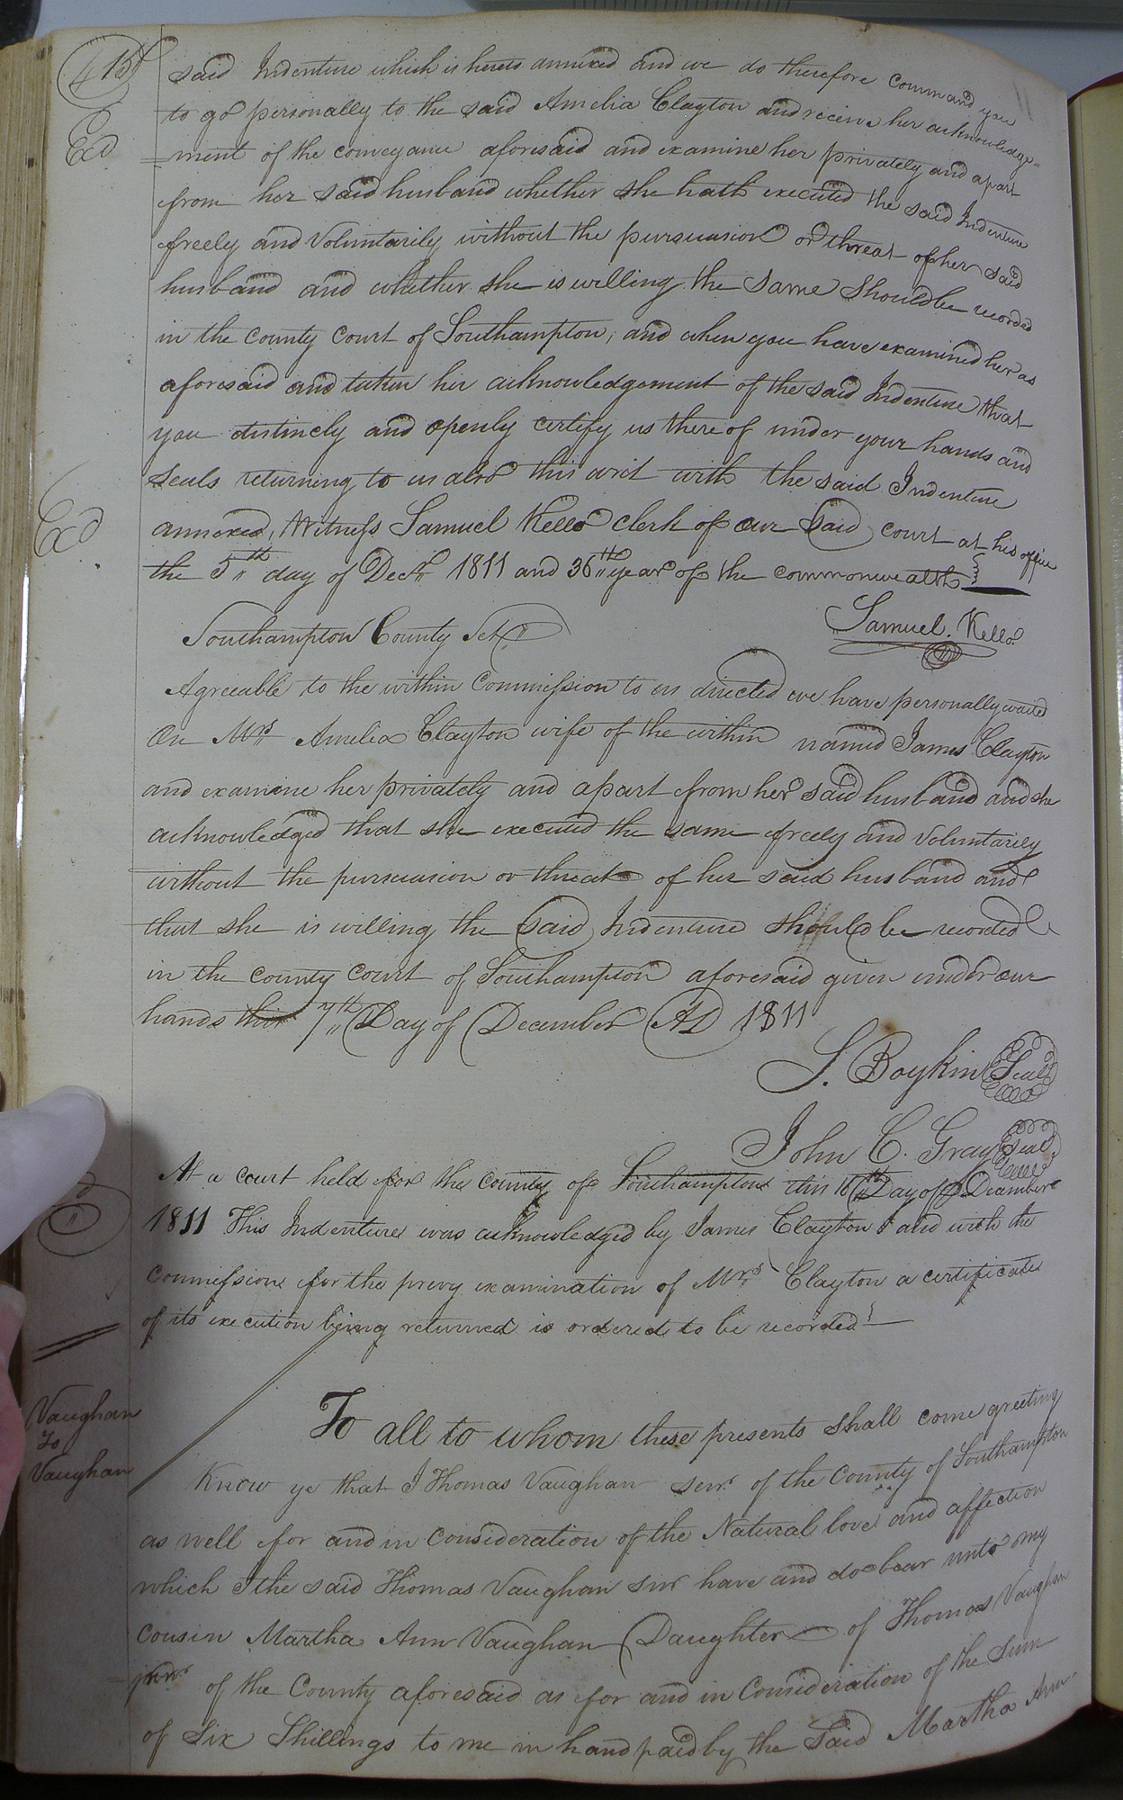 415
said Indenture which is hereto annexed and we do therefore command you
to go personally to the said Amelia Clayton and receive her acknowledge=
=ment of the conveyance aforesaid and examine her privately and apart
from her said husband whether she hath executed the said Indenture
freely and Voluntarily without the pursuasion or threat of her said
husband and whether she is willing the same should be recorded
in the county court of Southampton, and when you have examined her as
aforesaid and taken her acknowledgement of the said Indenture that
you distincly and openly certify us there of under your hands and
seals returning to us also this writ with the said Indenture
annexed, Witness Samuel Kello clerk of our said court at his office
the 5th day of Decr 1811 and 36th year of the commonwealth
Samuel. Kello
Southampton County Sct
Agreeable to the within Commission to us directed we have personally waited
On Mrs Amelia Clayton wife of the within named James Clayton
and examine her privately and apart from her said husband and she
acknowledged that she executed the same freely and Voluntarily
without the pursuasion or threat of her said husband and
that she is willing the said Indenture should be recorded
in the county court of Southampton aforesaid given under our
hands this 7th Day of December AD 1811
S. Boykin Seal
John C. Gray Seal
At a court held for the county of Southampton this 16th Day of Deamber
1811 This Indenture was acknowledged by James Clayton & and with the
commission for the prevy examination of Mrs Clayton a certificate
of its execution being returned is ordered to be recorded
Vaughan
To
Vaughan
To all to whom these presents shall come greeting
Know ye that I Thomas Vaughan senr. of the County of Southampton
as well for and in consideration of the Natural love and affection
which I the said Thomas Vaughan snr have and do bear unto my
Cousin Martha Ann Vaughan Daughter of Thomas Vaughan
junr of the County aforesaid as for and in Consideration of the Sum
of Six Shillings to me in hand paid by the said Martha Ann